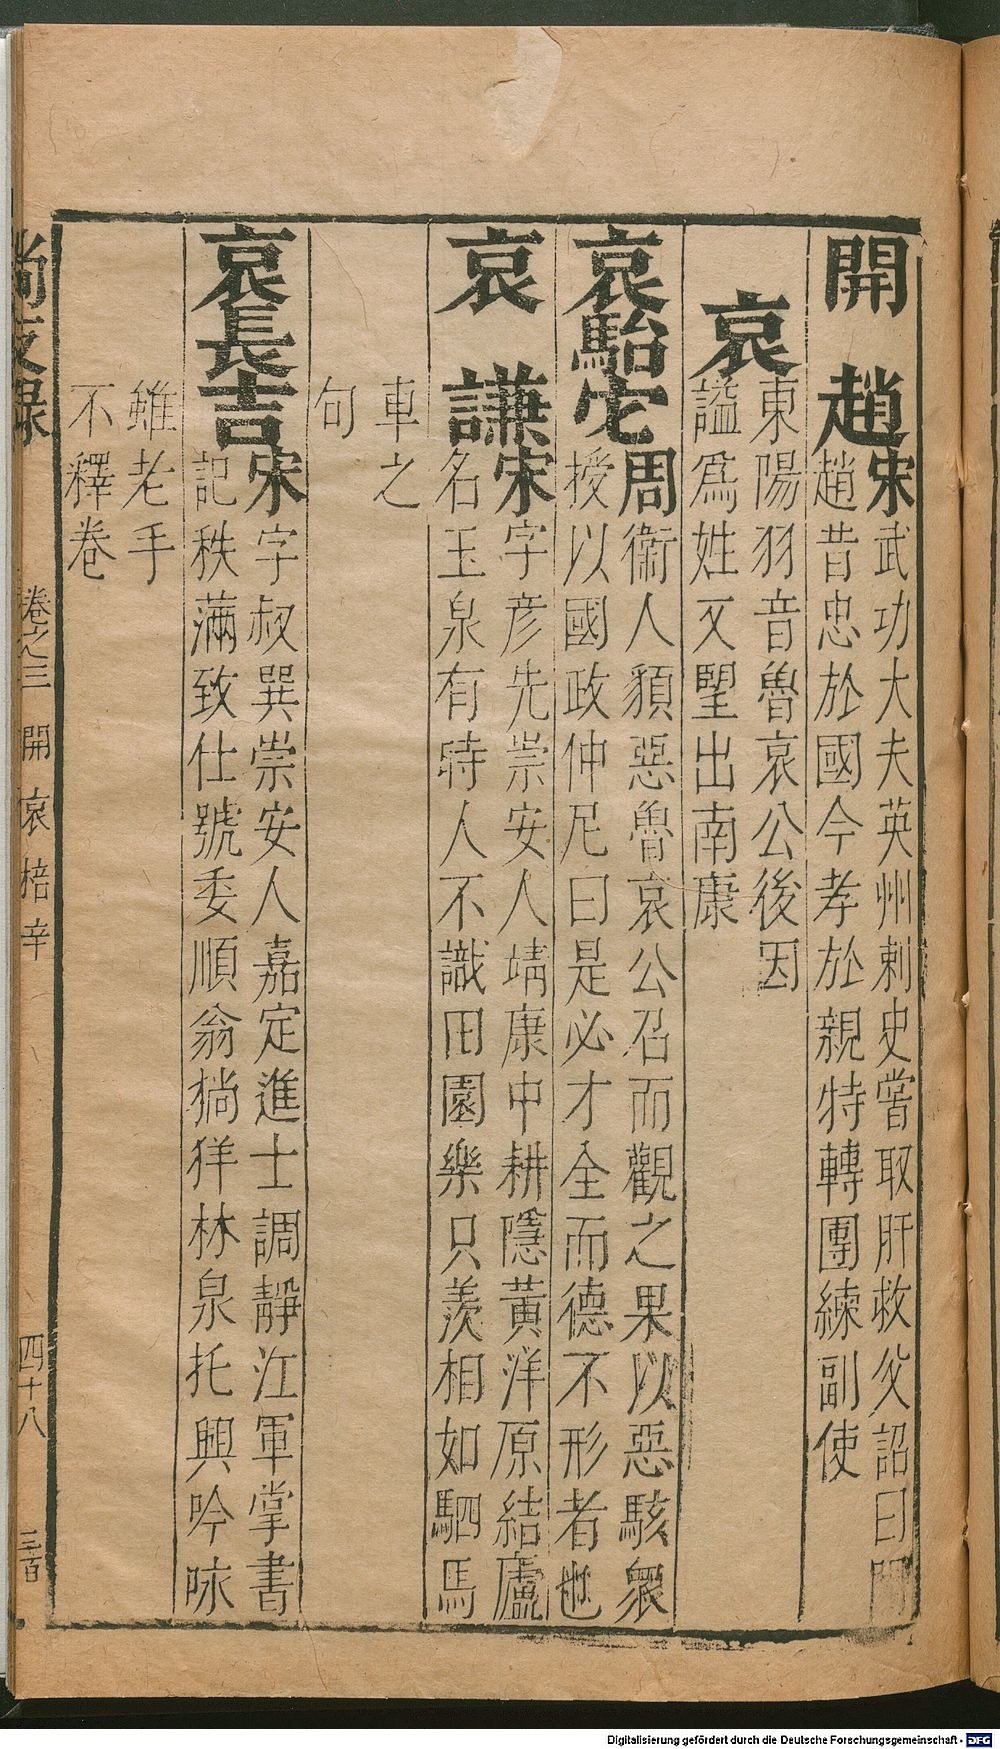 開趙宋武功大夫英州刺史嘗取肝救父詔曰開
趙昔忠於國今孝於親特轉團練副使
哀
東陽羽音魯哀公後因
謚爲姓又望出南康
哀駘它周衞人頟惡魯哀公召而觀之果以惡駭衆
授以國政仲尼曰是必才全而德不形者也
哀謙宋字彦先崇安人靖康中耕隱黃洋原結廬
名玉泉有時人不識田園樂只羨相如駟馬
車之
句
哀長吉宋字叔巽崇安人嘉定進士調靜江軍掌書
記秩滿致仕號委順翁徜徉林泉托興吟咏
雖老手
不釋卷
尚友錄 卷之三 開 哀 梓 四十八 三百
Digitalisierung gefördert durch die Deutsche Forschungsgemeinschaft - DFG